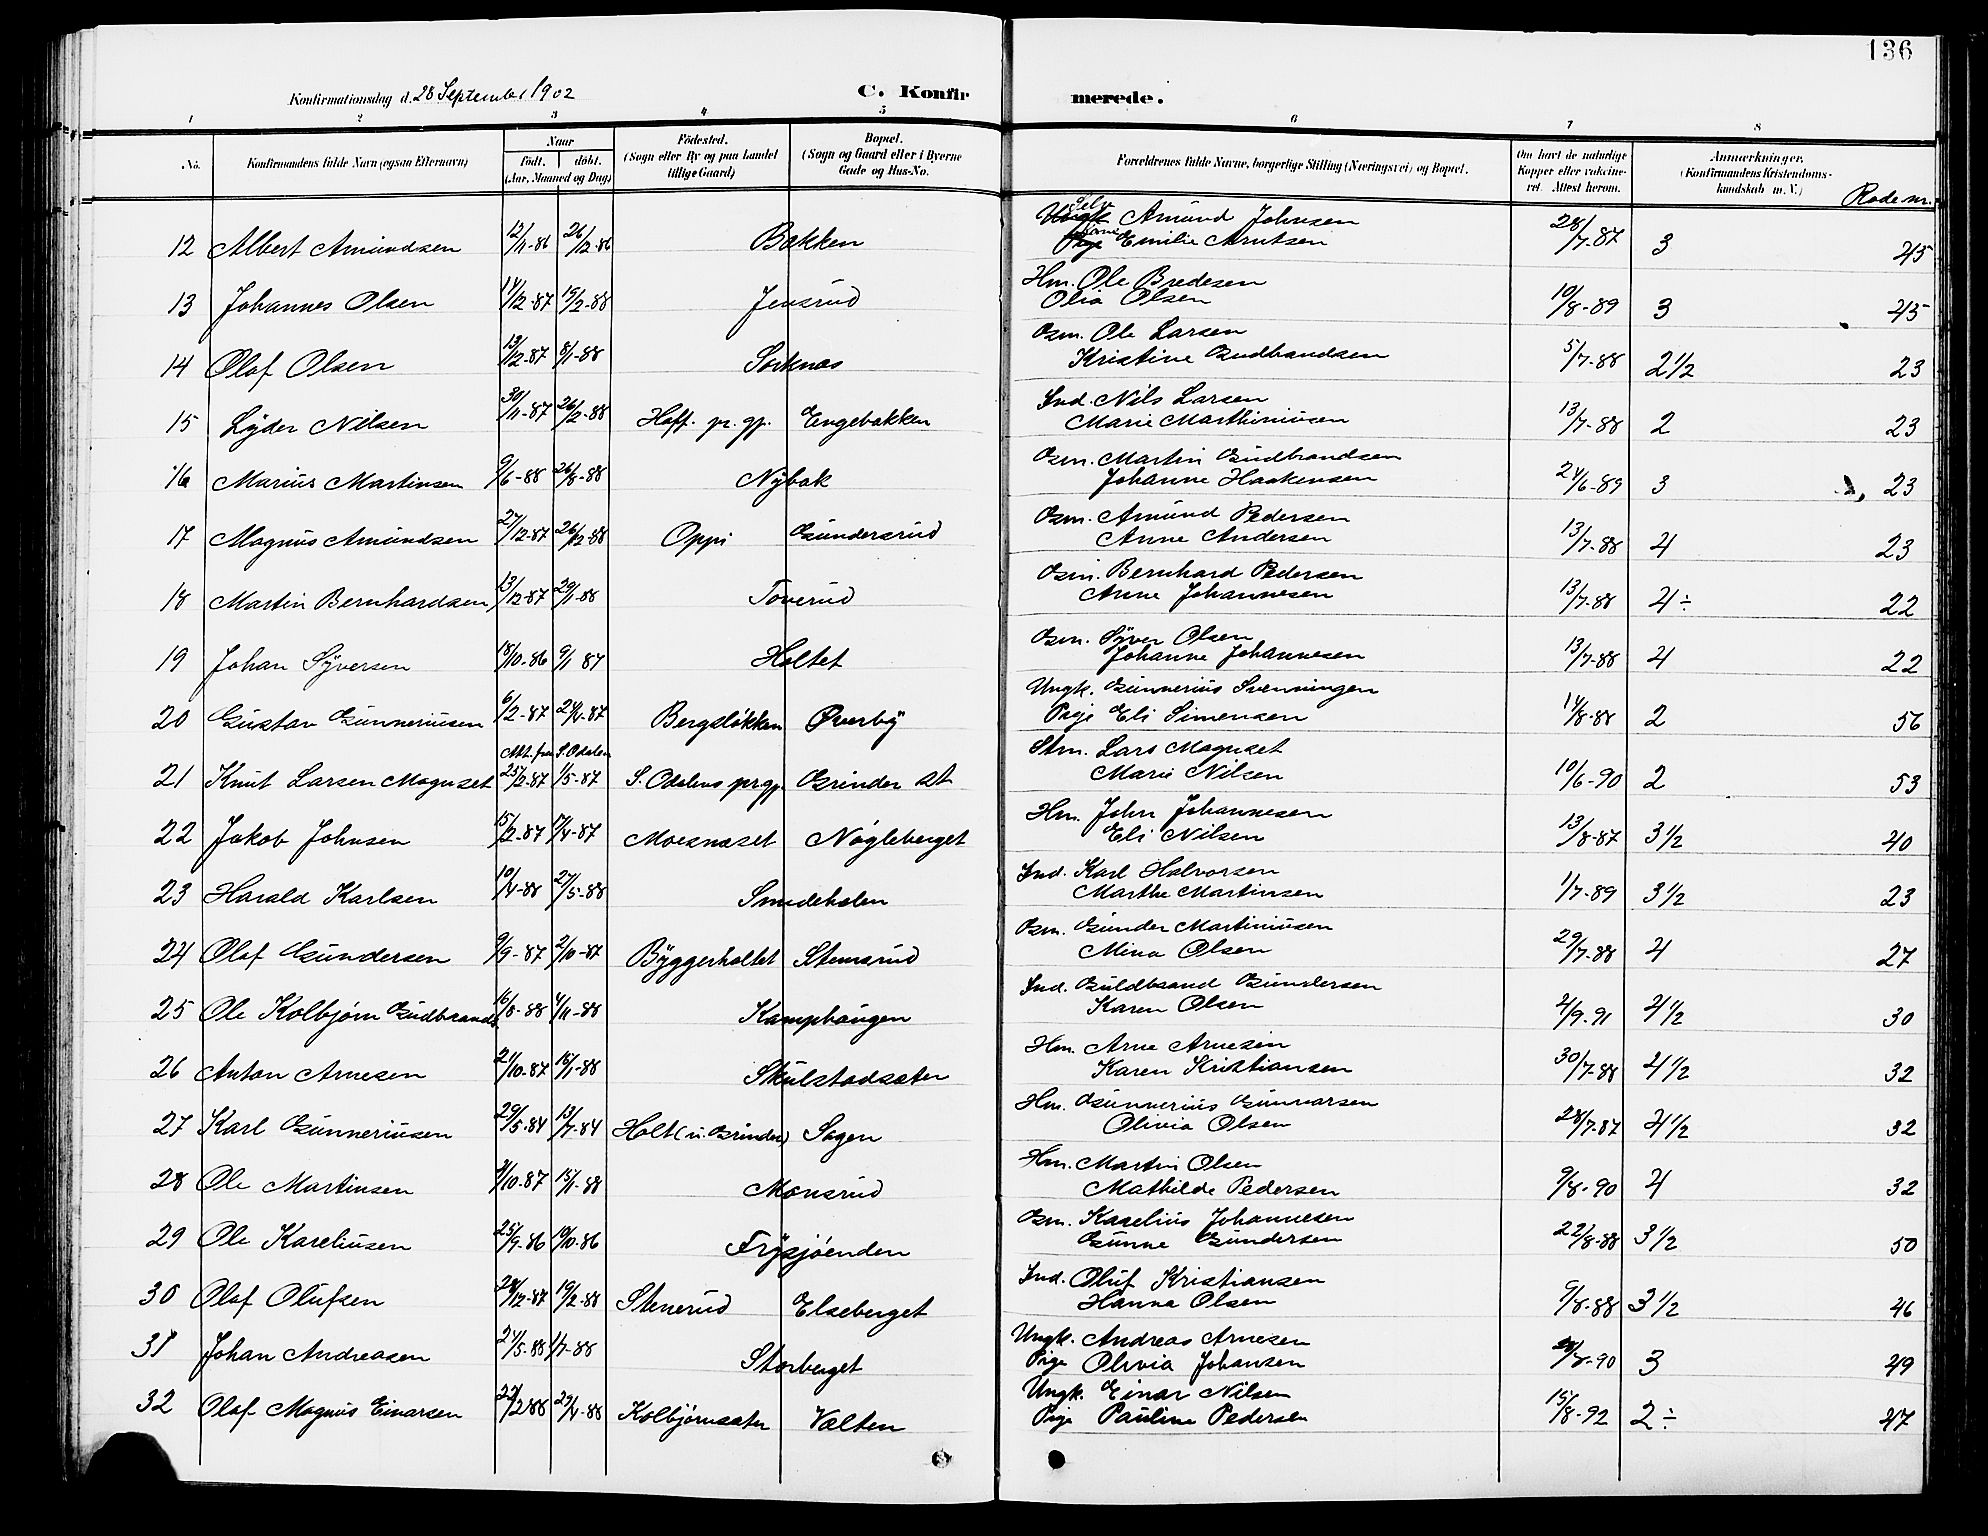 136
Konfirmationsdag d. 28 September 1902 C. Konfirmerede.
1 2 3 4 5 6 7 8
No. Konfirmandens fulde Navn (ogsaa Efternavn) Naar født. døbt. (Aar, Maaned og Dag) Fødested. (Sogn eller By og paa Landet tillige Gaard) Bopæl. (Sogn og Gaard eller i Byerne Gade og Hus-No. Forældrenes fulde Navne, borgerlige Stilling (Næringsvei) og Bopæl. Om havt de naturlige Kopper eller vaccineret. Attest herom. Anmærkninger. (Konfirmandens Kristendomskundskab m. V.) Rode nr.
12 Albert Amundsen 12/11-86 26/12-86 Bakken Selv Amund Johnsen Emilie Arntsen 28/7-87 3 45
13 Johannes Olsen 14/12-87 19/2-88 Jensrud Hm. Ole Bredesen Olia Olsen 10/8-89 3 45
14 Olaf Olsen 13/12-87 8/1-88 Sorknæs Gm. Ole Larsen Kristine Gudbrandsen 5/7-88 2 1/2 23
15 Lyder Nilsen 30/11-87 26/2-88 Hoff. pr. gj. Engebakken Ind. Nils Larsen Marie Marthiniusen 13/7-88 2 23
16 Marius Martinsen 9/6-88 26/8-88 Nybak Gm. Martin Gudbrandsen Johanne Haakensen 24/6-89 3 23
17 Magnus Amundsen 27/12-87 26/12-88 Oppi Gundersrud Gm. Amund Pedersen Anne Andersen 13/7-88 4 23
18 Martin Bernhardsen 13/12-87 29/1-88 Toverud Gm. Bernhard Pedersen Anne Johannesen 13/7-88 4÷ 22
19 Johan Syversen 18/10-86 9/1 87 Holtet Gm. Syver Olsen Johanne Johannesen 13/7-88 4 22
20 Gustav Gunneriusen 6/2-87 24/4-87 Bergsløkken Øverby Ungk. Gunnerius Svenningen Pige Eli Simensen 14/8-88 2 56
Att. fra S. Odalen
21 Knut Larsen Magnset 25/2-87 1/5-87 S. Odalens prgj. Grinder st. Stm. Lars Magnset Marie Nilsen 10/6-90 2 53
22 Jakob Johnsen 15/2-87 17/4-87 Moesnæset Nøgleberget Hm. John Johannesen Eli Nilsen 13/8-87 3 1/2 40
23 Harald Karlsen 10/4-88 27/5-88 Smedeholen Ind. Karl Halvorsen Marthe Martinsen 1/7-89 3 1/2 23
24 Olaf Gundersen 9/9-87 2/10-87 Byggerholtet Stemsrud Gm. Gunder Martiniusen Mina Olsen 29/7-88 4 27
25 Ole Kolbjørn Gudbrands 16/8-88 4/11-88 Kamphaugen Ind. Guldbrand Gundersen Karen Olsen 2/9-91 4 1/2 30
26 Anton Arnesen 21/10-87 15/1-88 Skulstadsæter Hm. Arne Arnesen Karen Kristiansen 30/7-88 4 1/2 32
27 Karl Gunneriusen 29/5-84 13/7-84 Holt (u. Grinder) Sagen Hm. Gunnerius Gunnarsen Olivia Olsen 28/7-87 4 1/2 32
28 Ole Martinsen 9/10-87 15/1-88 Monsrud Hm. Martin Olsen Mathilde Pedersen 9/8-90 4 32
29 Ole Kareliusen 25/9-86 10/10-86 Frysjøenden Gm. Karelius Johannesen Gunne Gundersen 22/8-88 3 1/2 50
30 Olaf Olufsen 28/12-87 19/2-88 Stenerud Elseberget Ind. Oluf Kristiansen Hanna Olsen 9/8-88 3 1/2 46
31 Johan Andreasen 24/5-88 1/7-88 Storberget Ungk. Andreas Arnesen Pige Olivia Johansen 8-90 3 49
32 Olaf Magnus Einarsen 22/2-88 29/4-88 Kolbjørnsæter Vælten Ungk. Einar Nilsen Pige Pauline Pedersen 15/8-92 2÷ 47